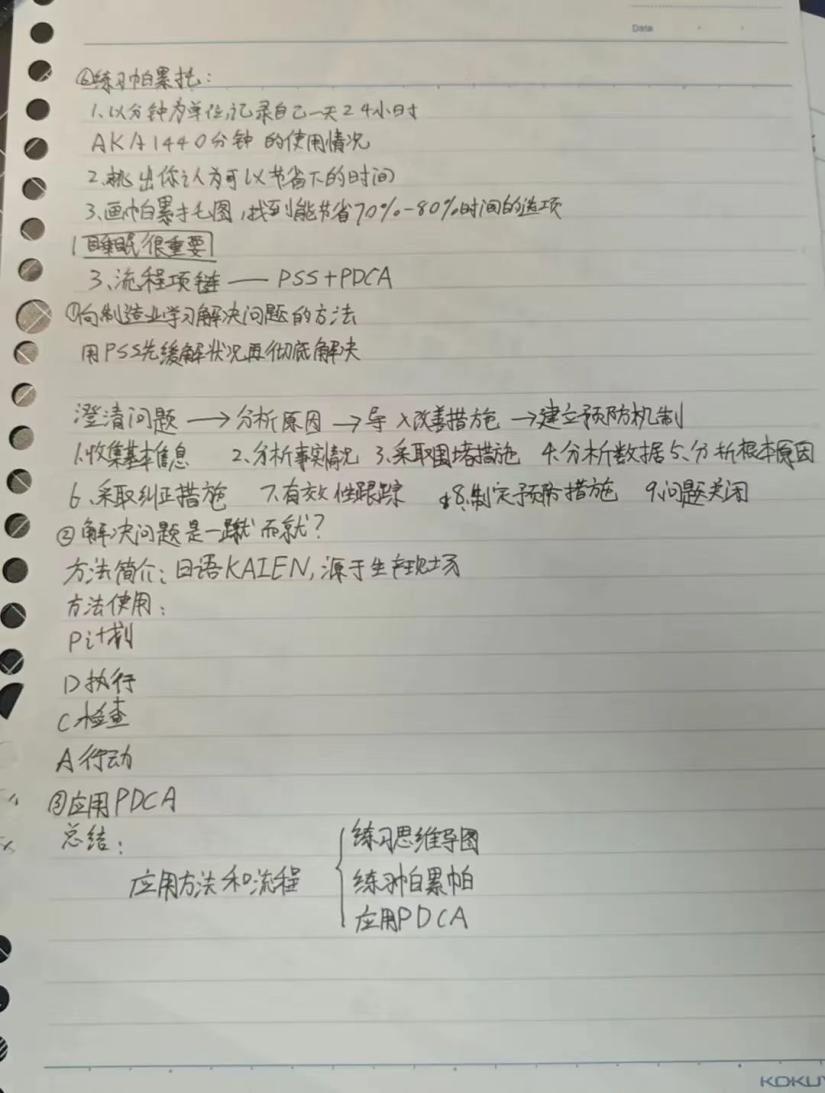 Data
④练习帕累托：
1、以分钟为单位，记录自己一天24小时
AKA1440分钟的使用情况
2、挑出你认为可以节省下的时间
3、画帕累托图，找到能节省70%-80%时间的选项
睡眠很重要
3、流程项链——PSS+PDCA
①向制造业学习解决问题的方法
用PSS先缓解状况再彻底解决
澄清问题→分析原因→导入改善措施→建立预防机制
1、收集基本信息 2、分析事实情况 3、采取围堵措施 4、分析数据 5、分析根本原因
6、采取纠正措施 7、有效性跟踪 8、制定预防措施 9、问题关闭
②解决问题是一蹴而就？
方法简介：日语KAIEN，源于生产现场
方法使用：
P计划
D执行
C检查
A行动
③应用PDCA
总结：
练习思维导图
应用方法和流程
练习帕累帕
应用PDCA
KOKUY